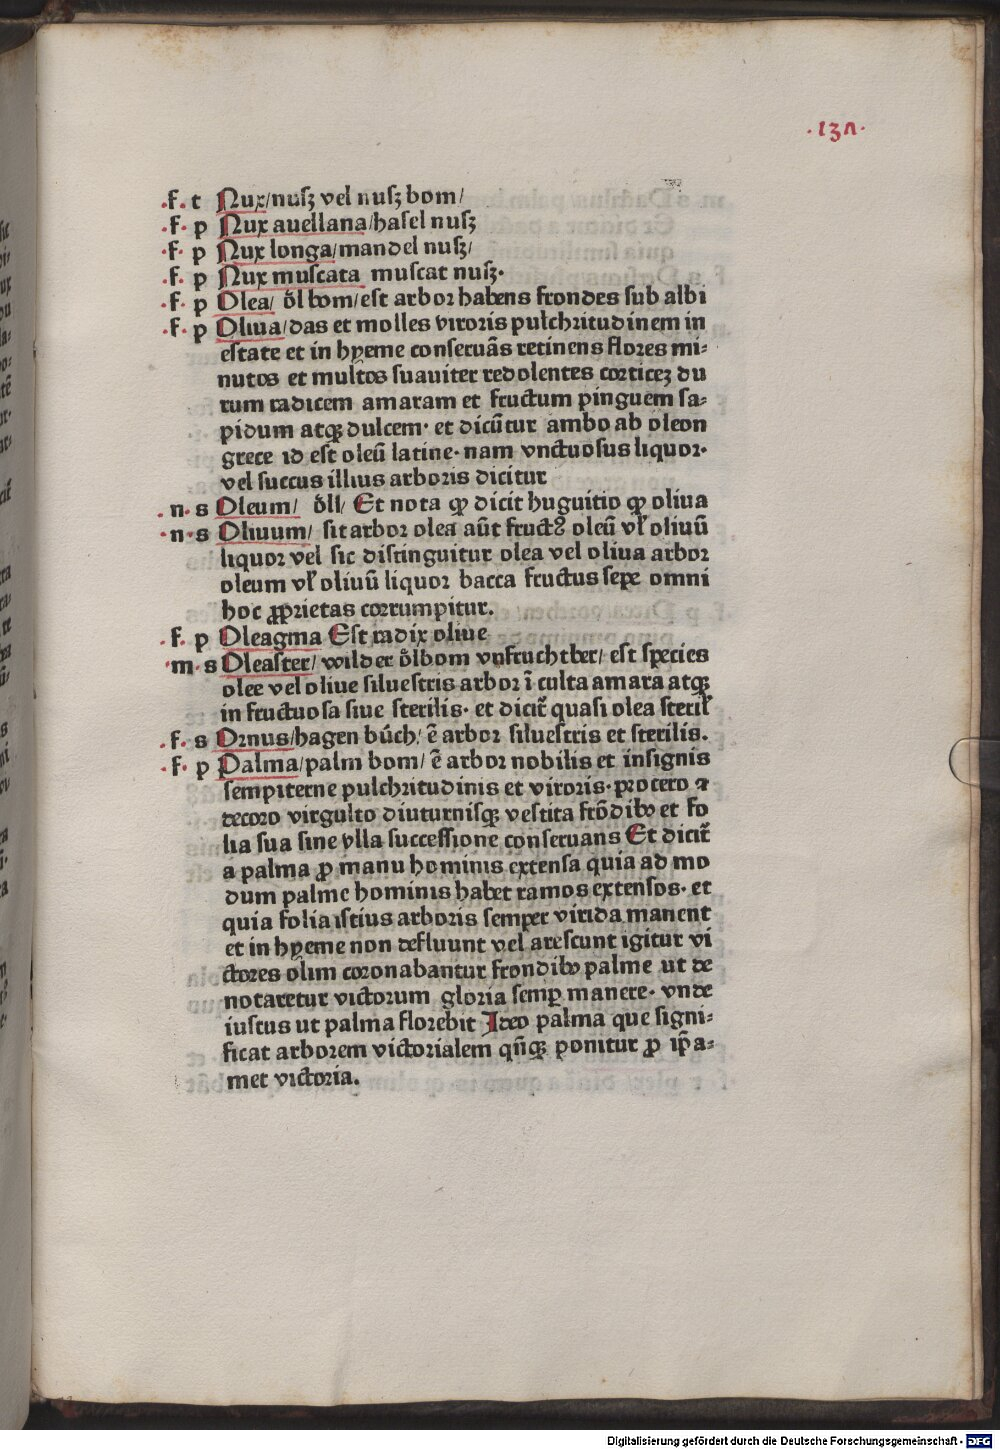 ·137·
·f· t Nux/nusʒ vel nusʒ bom/
·f· p Nux auellana/hasel nusʒ
·f· p Nux longa/mandel nusʒ/
·f· p Nux muscata muscat nusʒ·
·f· p Olea/ oͤl bom/est arbor habens frondes sub albi
·f· p Oliua/das et molles viroris pulchritudinem in
estate et in hyeme conseruãs retinens flores mi⸗
nutos et multos suauiter redolentes corticeʒ du
rum radicem amaram et fructum pinguem sa⸗
pidum atqꝫ dulcem· et dicũtur ambo ab oleon
grece id est oleũ latine· nam vnctuosus liquor·
vel succus illius arboris dicitur
·n· s Oleum/ oͤll/ Et nota ꝙ dicit huguitio ꝙ oliua
·n· s Oliuum/ sit arbor olea aũt fructꝰ oleũ vl̕ oliuũ
liquor vel sic distinguitur olea vel oliua arbor
oleum vl̕ oliuũ liquor bacca fructus sepe omni
hoc ꝓprietas corrumpitur.
·f· p Oleagma Est radix oliue
·m· s Oleaster/ wilder oͤlbom vnfruchtber/ est species
olee vel oliue siluestris arbor ĩ culta amara atqꝫ
in fructuosa siue sterilis· et dicit̃ quasi olea steril̕
·f· s Ornus/hagen buͦch/ ẽ arbor siluestris et sterilis.
·f· p Palma/palm bom/ ẽ arbor nobilis et insignis
sempiterne pulchritudinis et viroris· procero ⁊
decoro virgulto diuturnisqꝫ vestita frõdibꝰ et fo
lia sua sine vlla successione conseruans Et dicit̃
a palma ꝓ manu hominis extensa quia ad mo
dum palme hominis habet ramos extensos· et
quia folia istius arboris semper virida manent
et in hyeme non defluunt vel arescunt igitur vi
ctores olim coronabantur frondibꝰ palme ut de
notaretur victorum gloria semꝑ manere· vnde
iustus ut palma florebit Ideo palma que signi⸗
ficat arborem victorialem qñqꝫ ponitur ꝓ ip̃a⸗
met victoria.
Digitalisierung gefördert durch die Deutsche Forschungsgemeinschaft - DFG